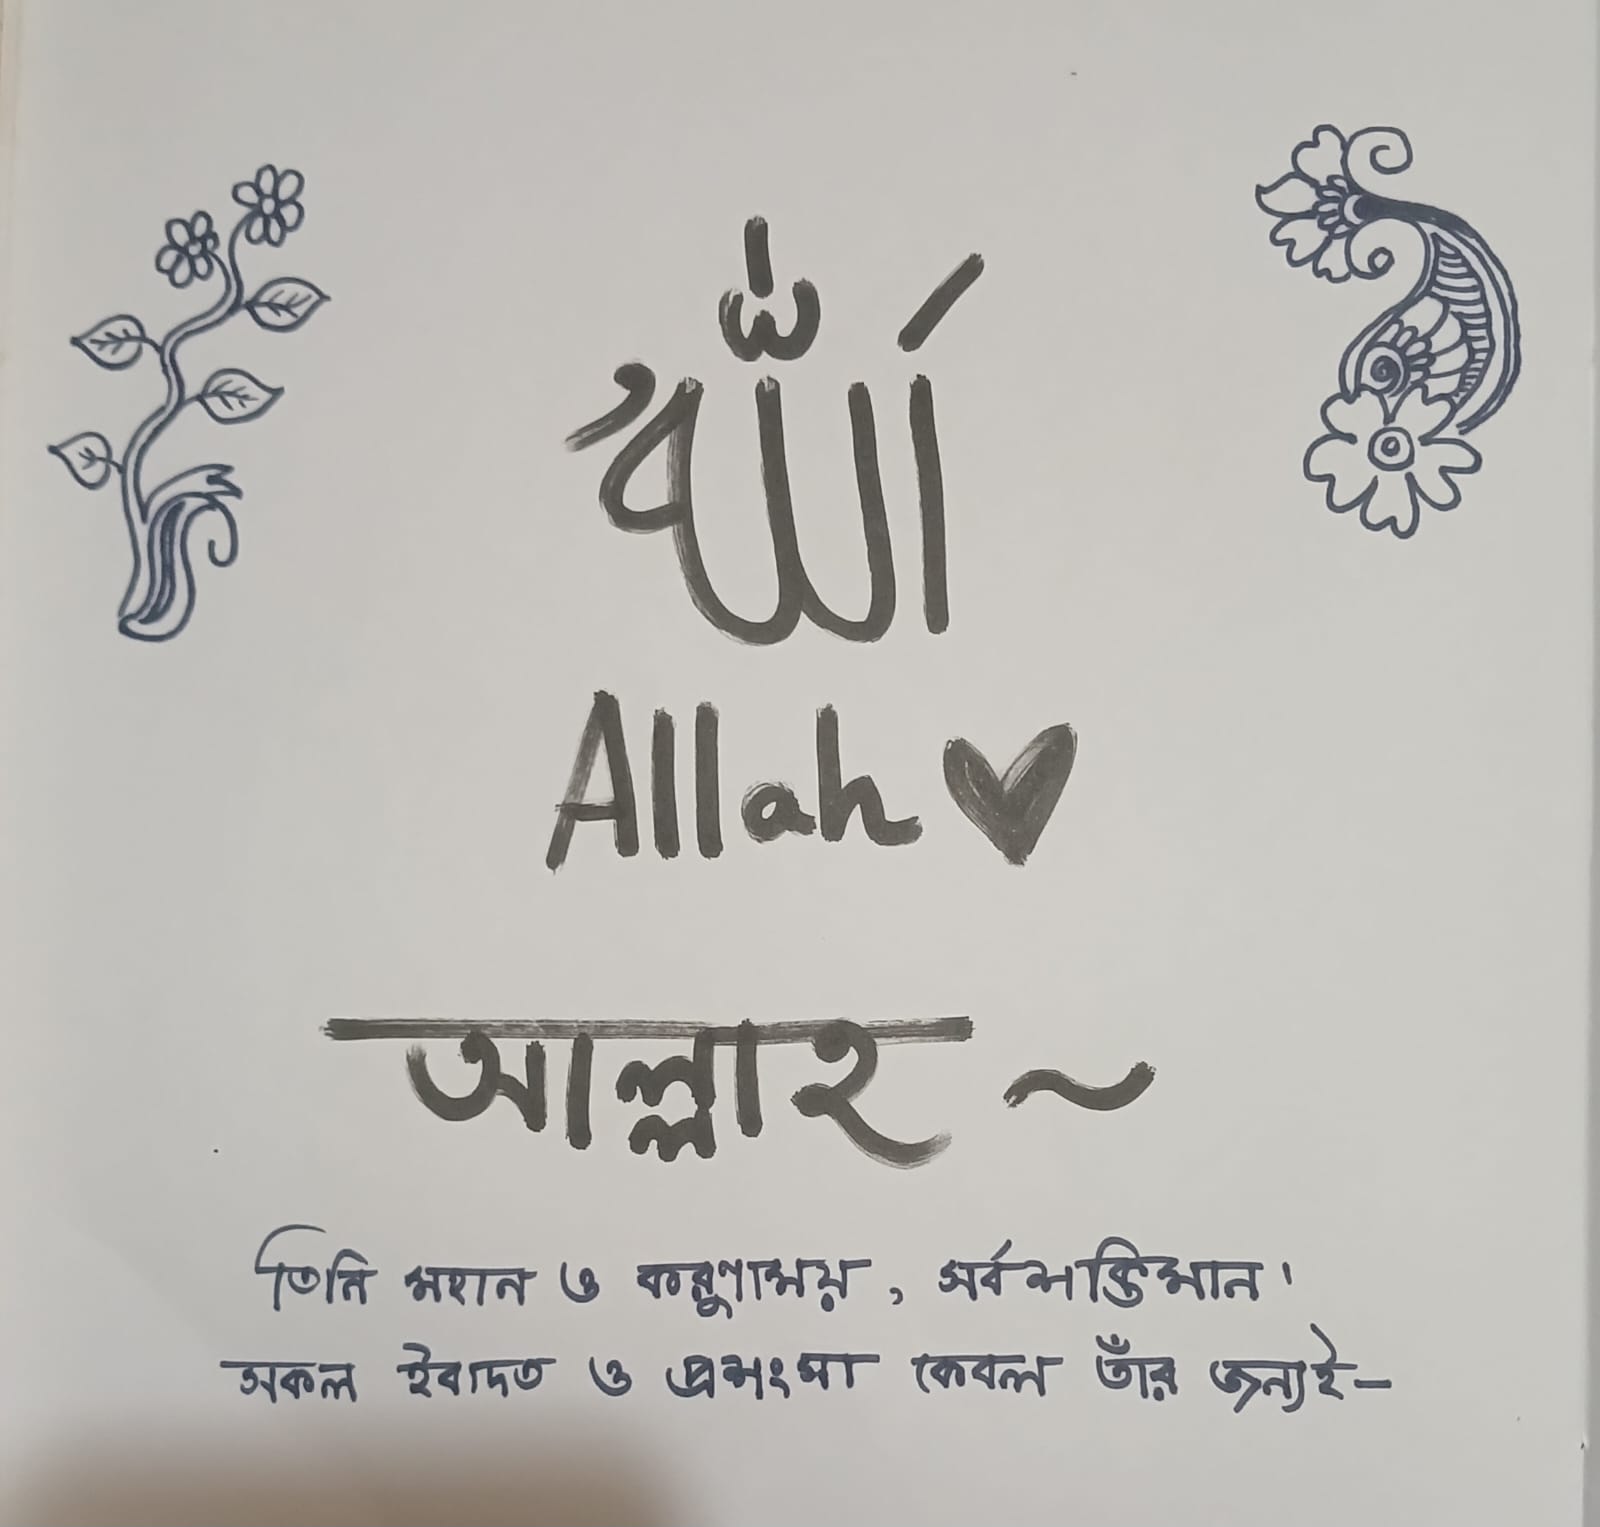 الله
Allah
আল্লাহ ~
তিনি মহান ও করুণাময়, সর্বশক্তিমান।
সকল ইবাদত ও প্রশংসা কেবল তাঁর জন্যই-